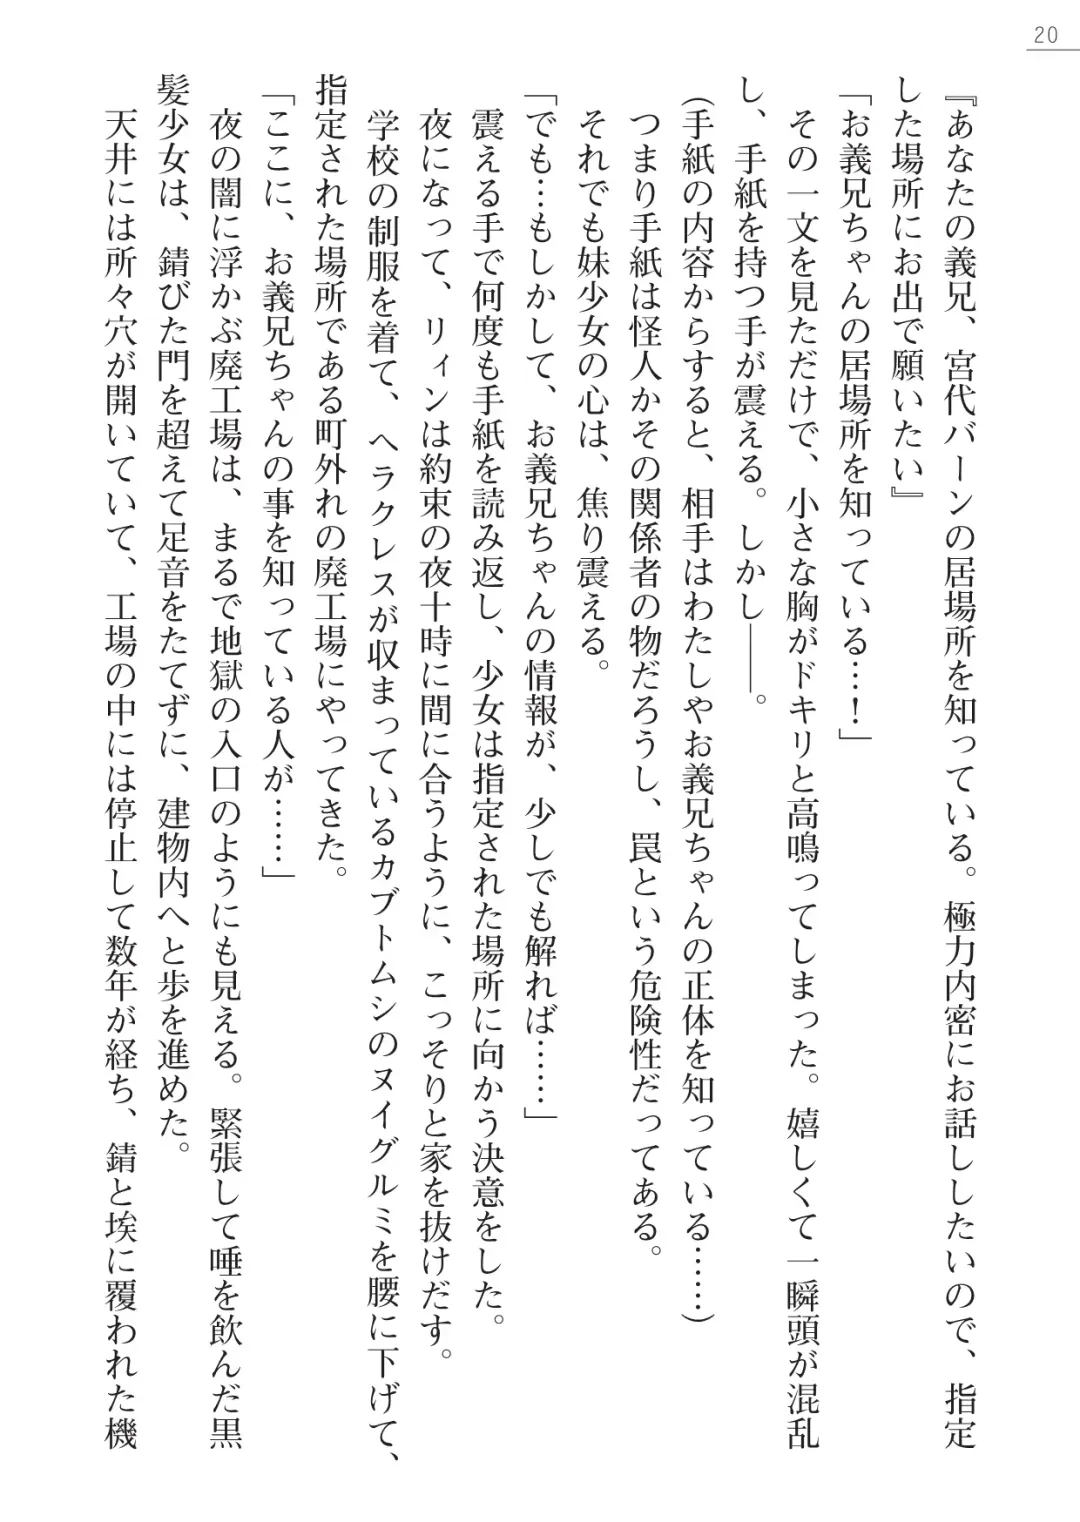 20
『あなたの義兄、宮代バーンの居場所を知っている。極力内密にお話ししたいので、指定
した場所にお出で願いたい』
「お義兄ちゃんの居場所を知っている…！」
その一文を見ただけで、小さな胸がドキリと高鳴ってしまった。嬉しくて一瞬頭が混乱
し、手紙を持つ手が震える。しかし――。
(手紙の内容からすると、相手はわたしやお義兄ちゃんの正体を知っている……)
つまり手紙は怪人かその関係者の物だろうし、罠という危険性だってある。
それでも妹少女の心は、焦り震える。
「でも…もしかして、お義兄ちゃんの情報が、少しでも解れば……」
震える手で何度も手紙を読み返し、少女は指定された場所に向かう決意をした。
夜になって、リィンは約束の夜十時に間に合うように、こっそりと家を抜けだす。
学校の制服を着て、ヘラクレスが収まっているカブトムシのヌイグルミを腰に下げて、
指定された場所である町外れの廃工場にやってきた。
「ここに、お義兄ちゃんの事を知っている人が……」
夜の闇に浮かぶ廃工場は、まるで地獄の入口のようにも見える。緊張して唾を飲んだ黒
髪少女は、錆びた門を超えて足音をたてずに、建物内へと歩を進めた。
天井には所々穴が開いていて、工場の中には停止して数年が経ち、錆と埃に覆われた機